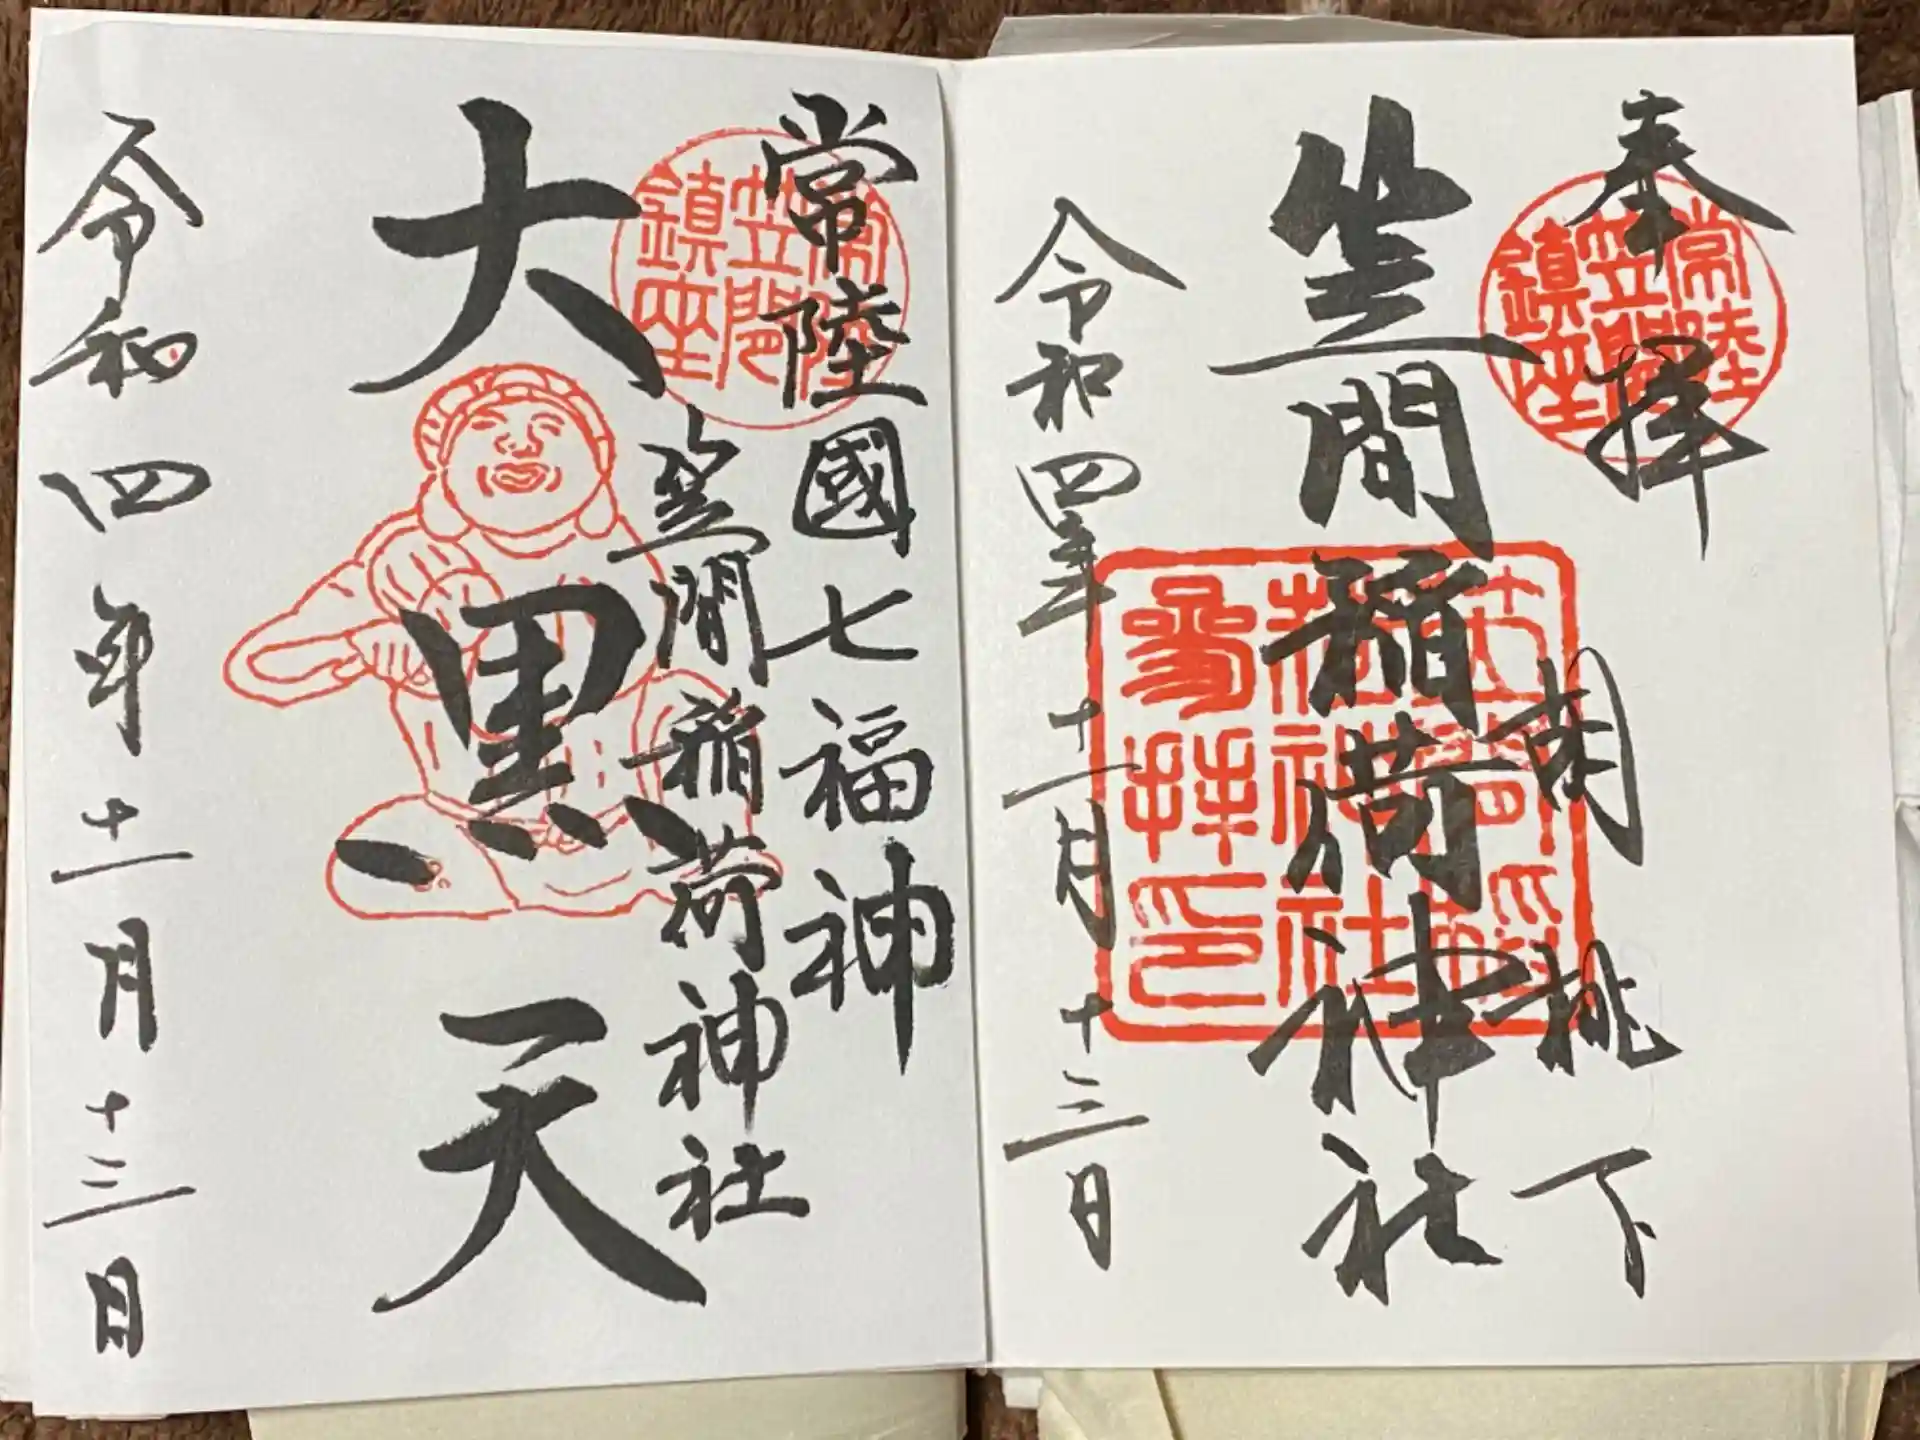 奉拝
胡桃下
笠間稲荷神社
令和四年十一月十三日
常陸
笠間
鎮座
笠間稲
荷神社
参拝印
常陸國七福神
笠間稲荷神社
大黒天
令和四年十一月十三日
常陸
笠間
鎮座